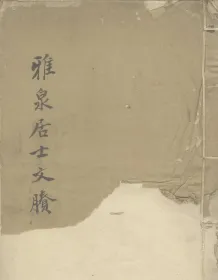 雅泉居士文賸